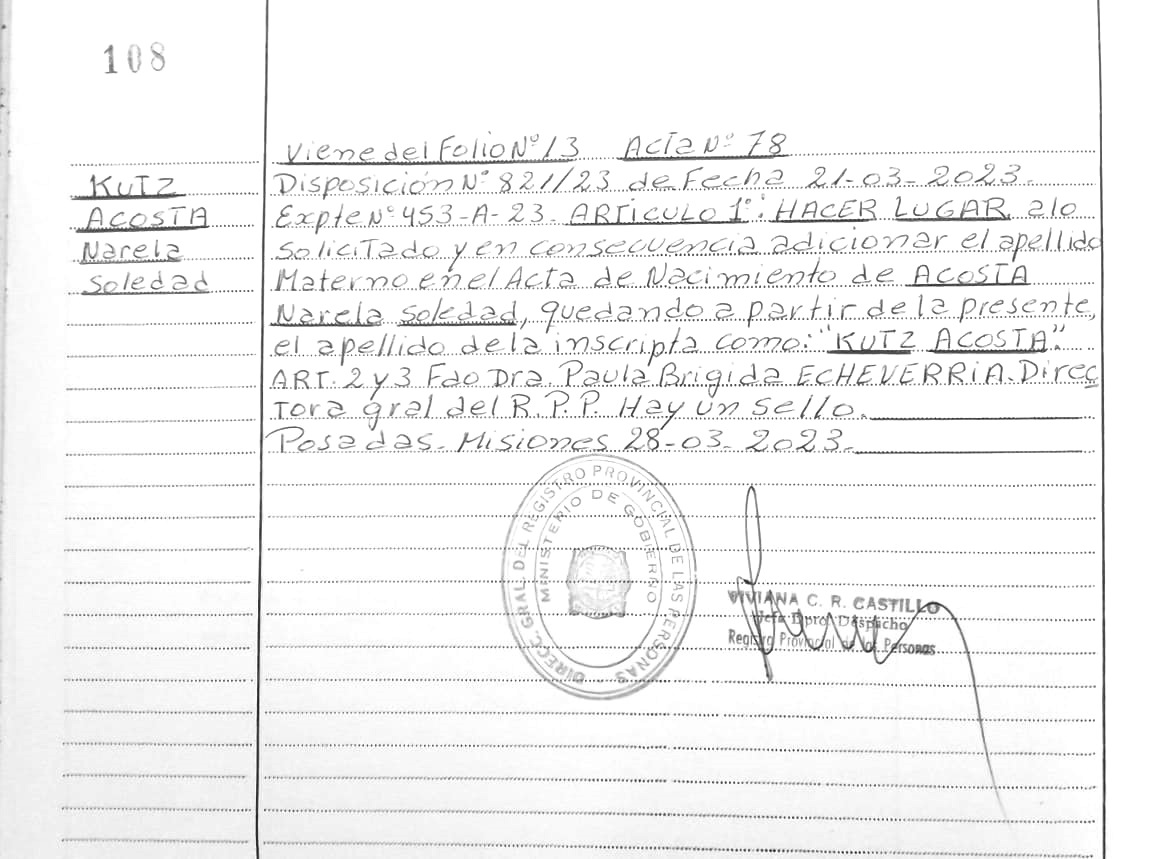 108
Viene del Folio Nº 13 Acta Nº 78
KUTZ
Disposición Nº 821/23 de Fecha 21-03-2023.
ACOSTA
Expte Nº 453-A-23. ARTICULO 1º: HACER LUGAR a lo
Narela
Solicitado y en consecuencia adicionar el apellido
Soledad
Materno en el Acta de Nacimiento de ACOSTA
Narela Soledad, quedando a partir de la presente,
el apellido de la inscripta como: "KUTZ ACOSTA".
ART. 2 y 3 Fdo Dra. Paula Brigida ECHEVERRIA. Direc
tora gral del R.P.P. Hay un sello.
Posadas - Misiones 28-03-2023.
DIRECC. GRAL. DEL REGISTRO PROVINCIAL DE LAS PERSONAS
MINISTERIO DE GOBIERNO
VIVIANA C. R. CASTILLO
Jefa Dpto. Despacho
Registro Provincial de las Personas